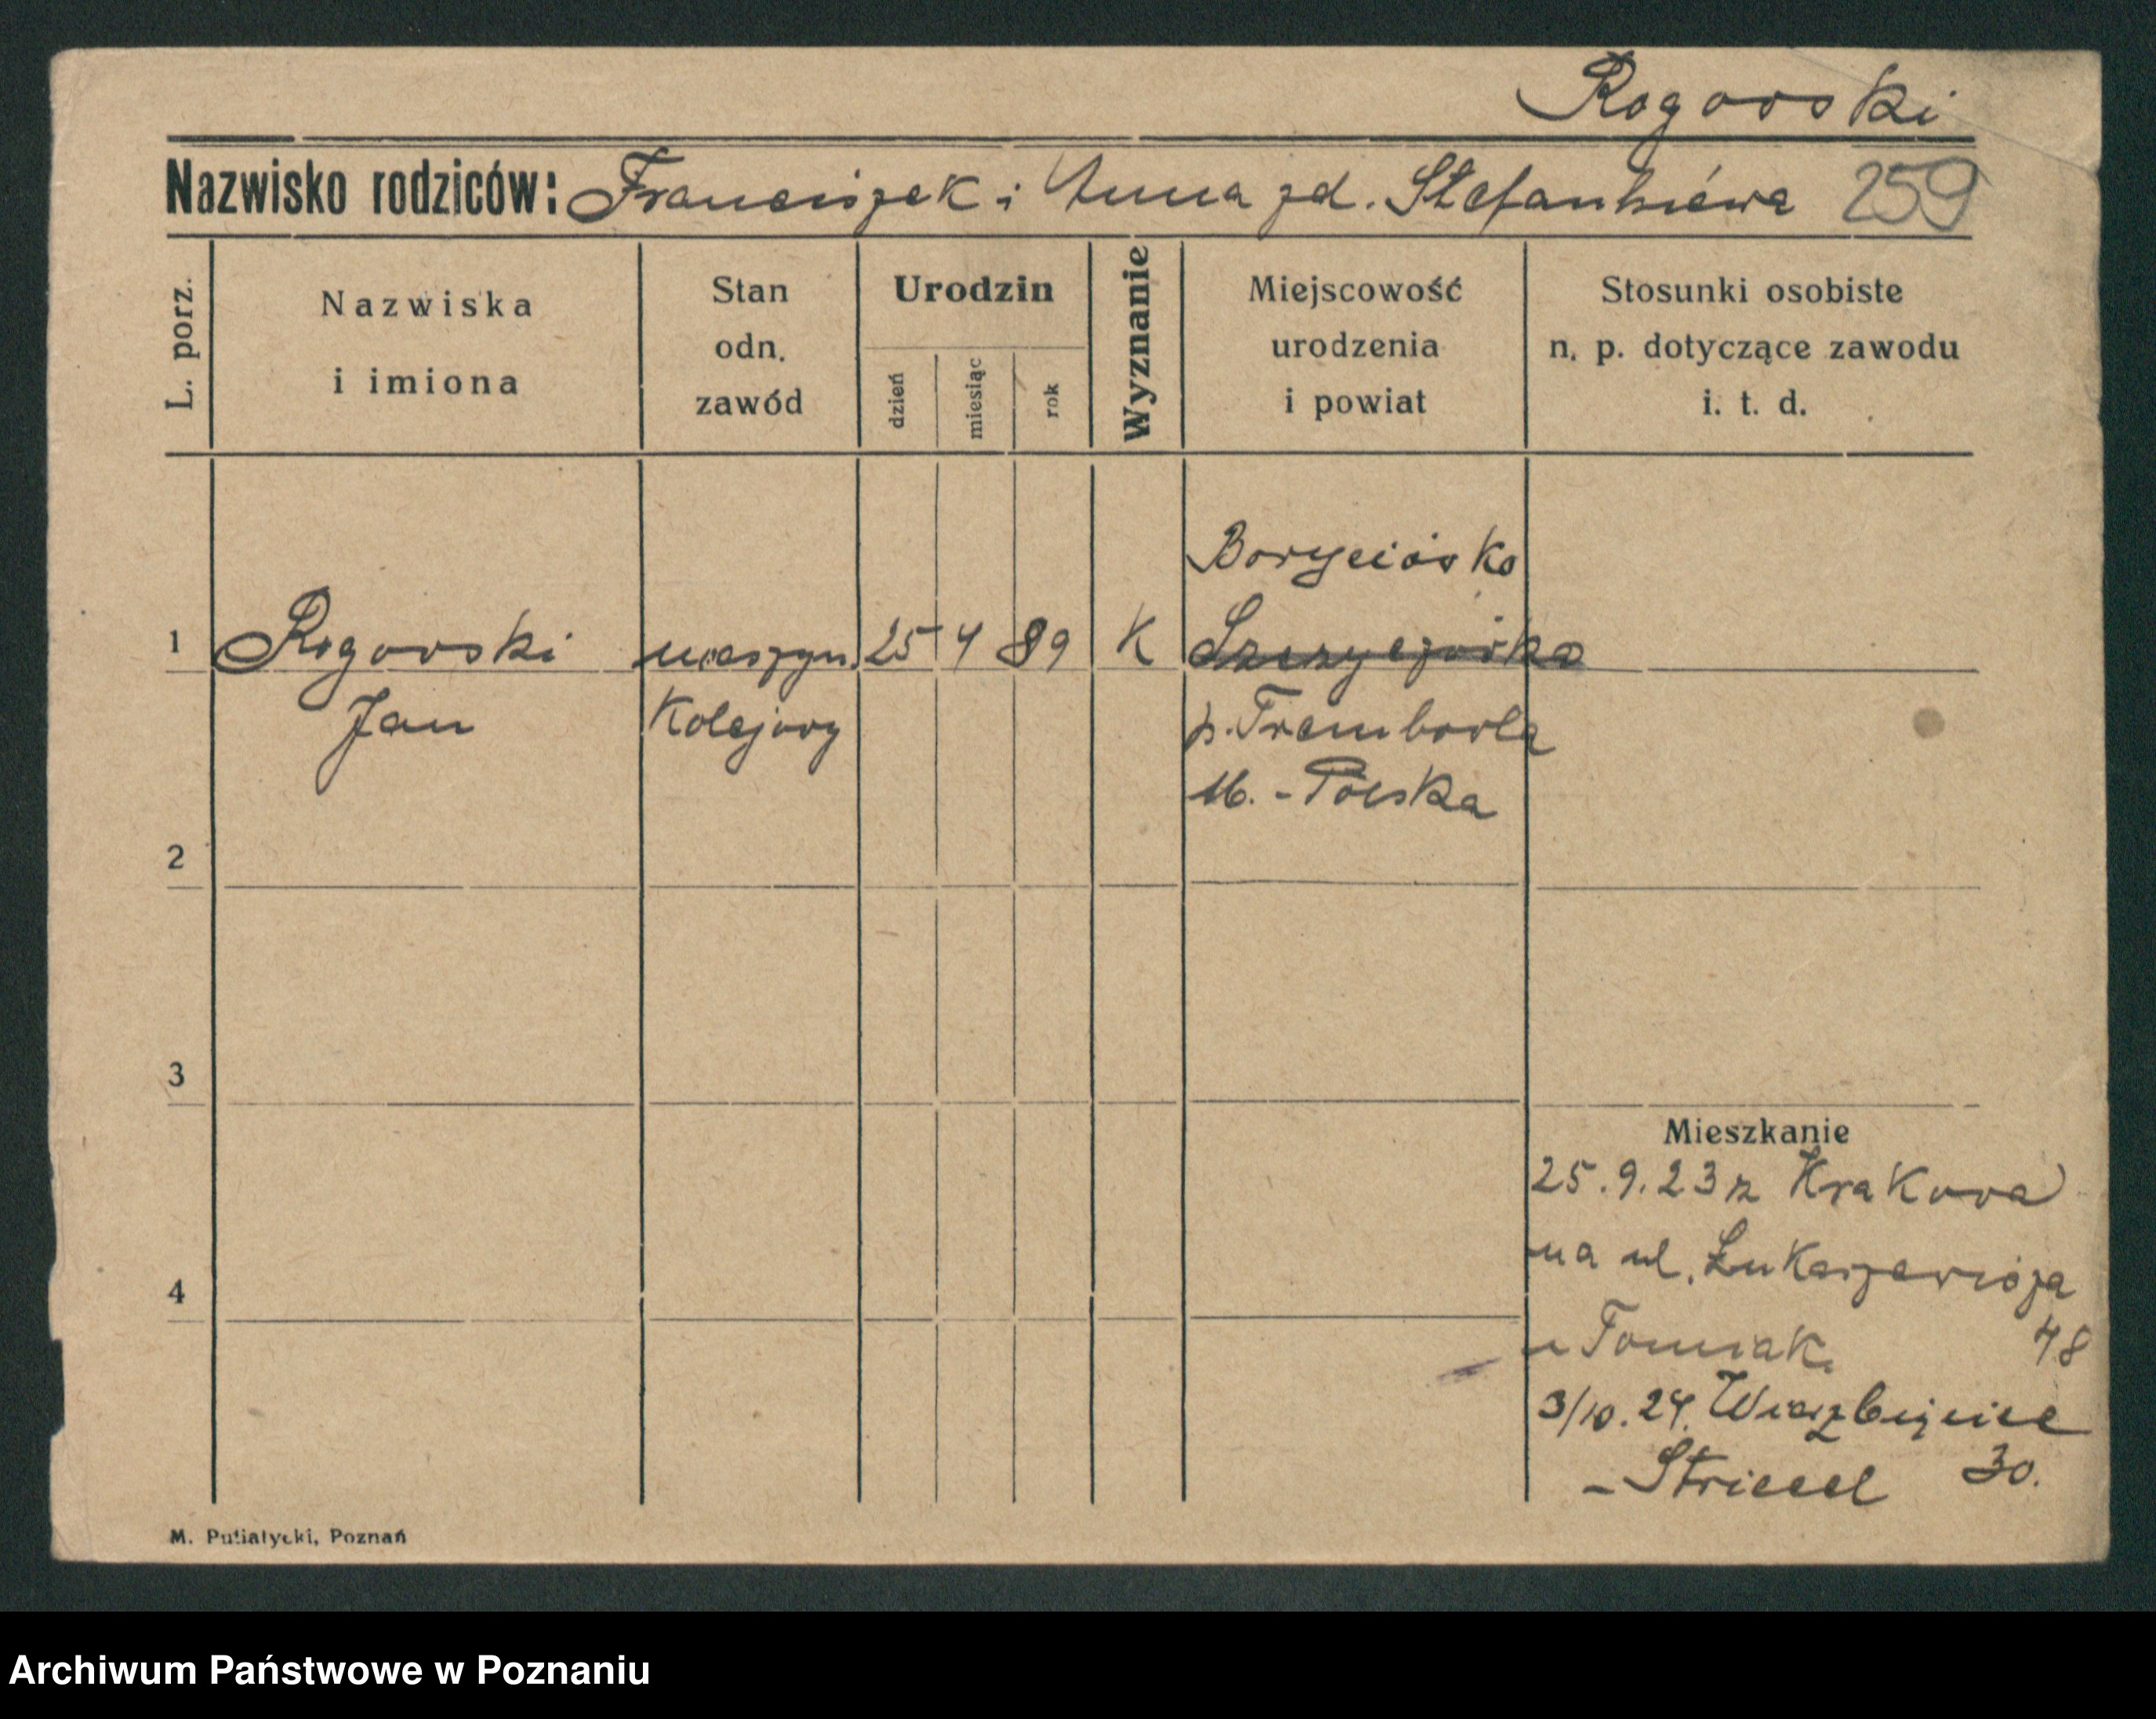 Rogowski
Nazwisko rodziców: Franciszek i Anna zd. Stefankiewa 259
L. porz.
Nazwiska i imiona
Stan odn. zawód
Urodzin
dzień miesiąc rok
Wyznanie
Miejscowość urodzenia i powiat
Stosunki osobiste n. p. dotyczące zawodu i. t. d.
1 Rogowski maszyn. 25 4 89 K
Jan Kolejowy
p. Trembowla
M.-Polska
2
3
4
Mieszkanie
25.9.23 z Krakowa
na ul. Łukaszewicza
u Tomiak 48
3/10.24. Wierzbięcice
30.
M. Putiatycki, Poznań
Archiwum Państwowe w Poznaniu